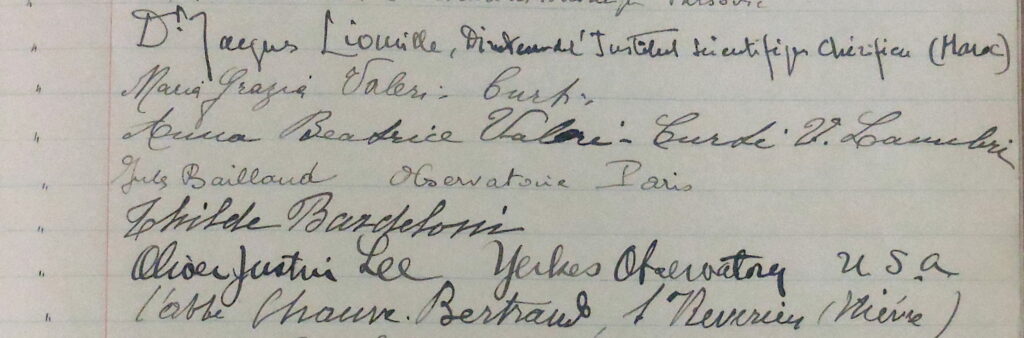 " Dr Jacques Liouville, Directeur de l'Institut Scientifique Chérifien (Maroc)
" Maria Grazia Valeri - Curti
" Anna Beatrice Valeri - Curti V. Lambri
" Jules Baillaud Observatoire Paris
" Thilde Bardeloni
" Oliver Justin Lee Yerkes Observatory U S.A
" l'abbé Chauve-Bertrand, St Reverien (Nièvre)